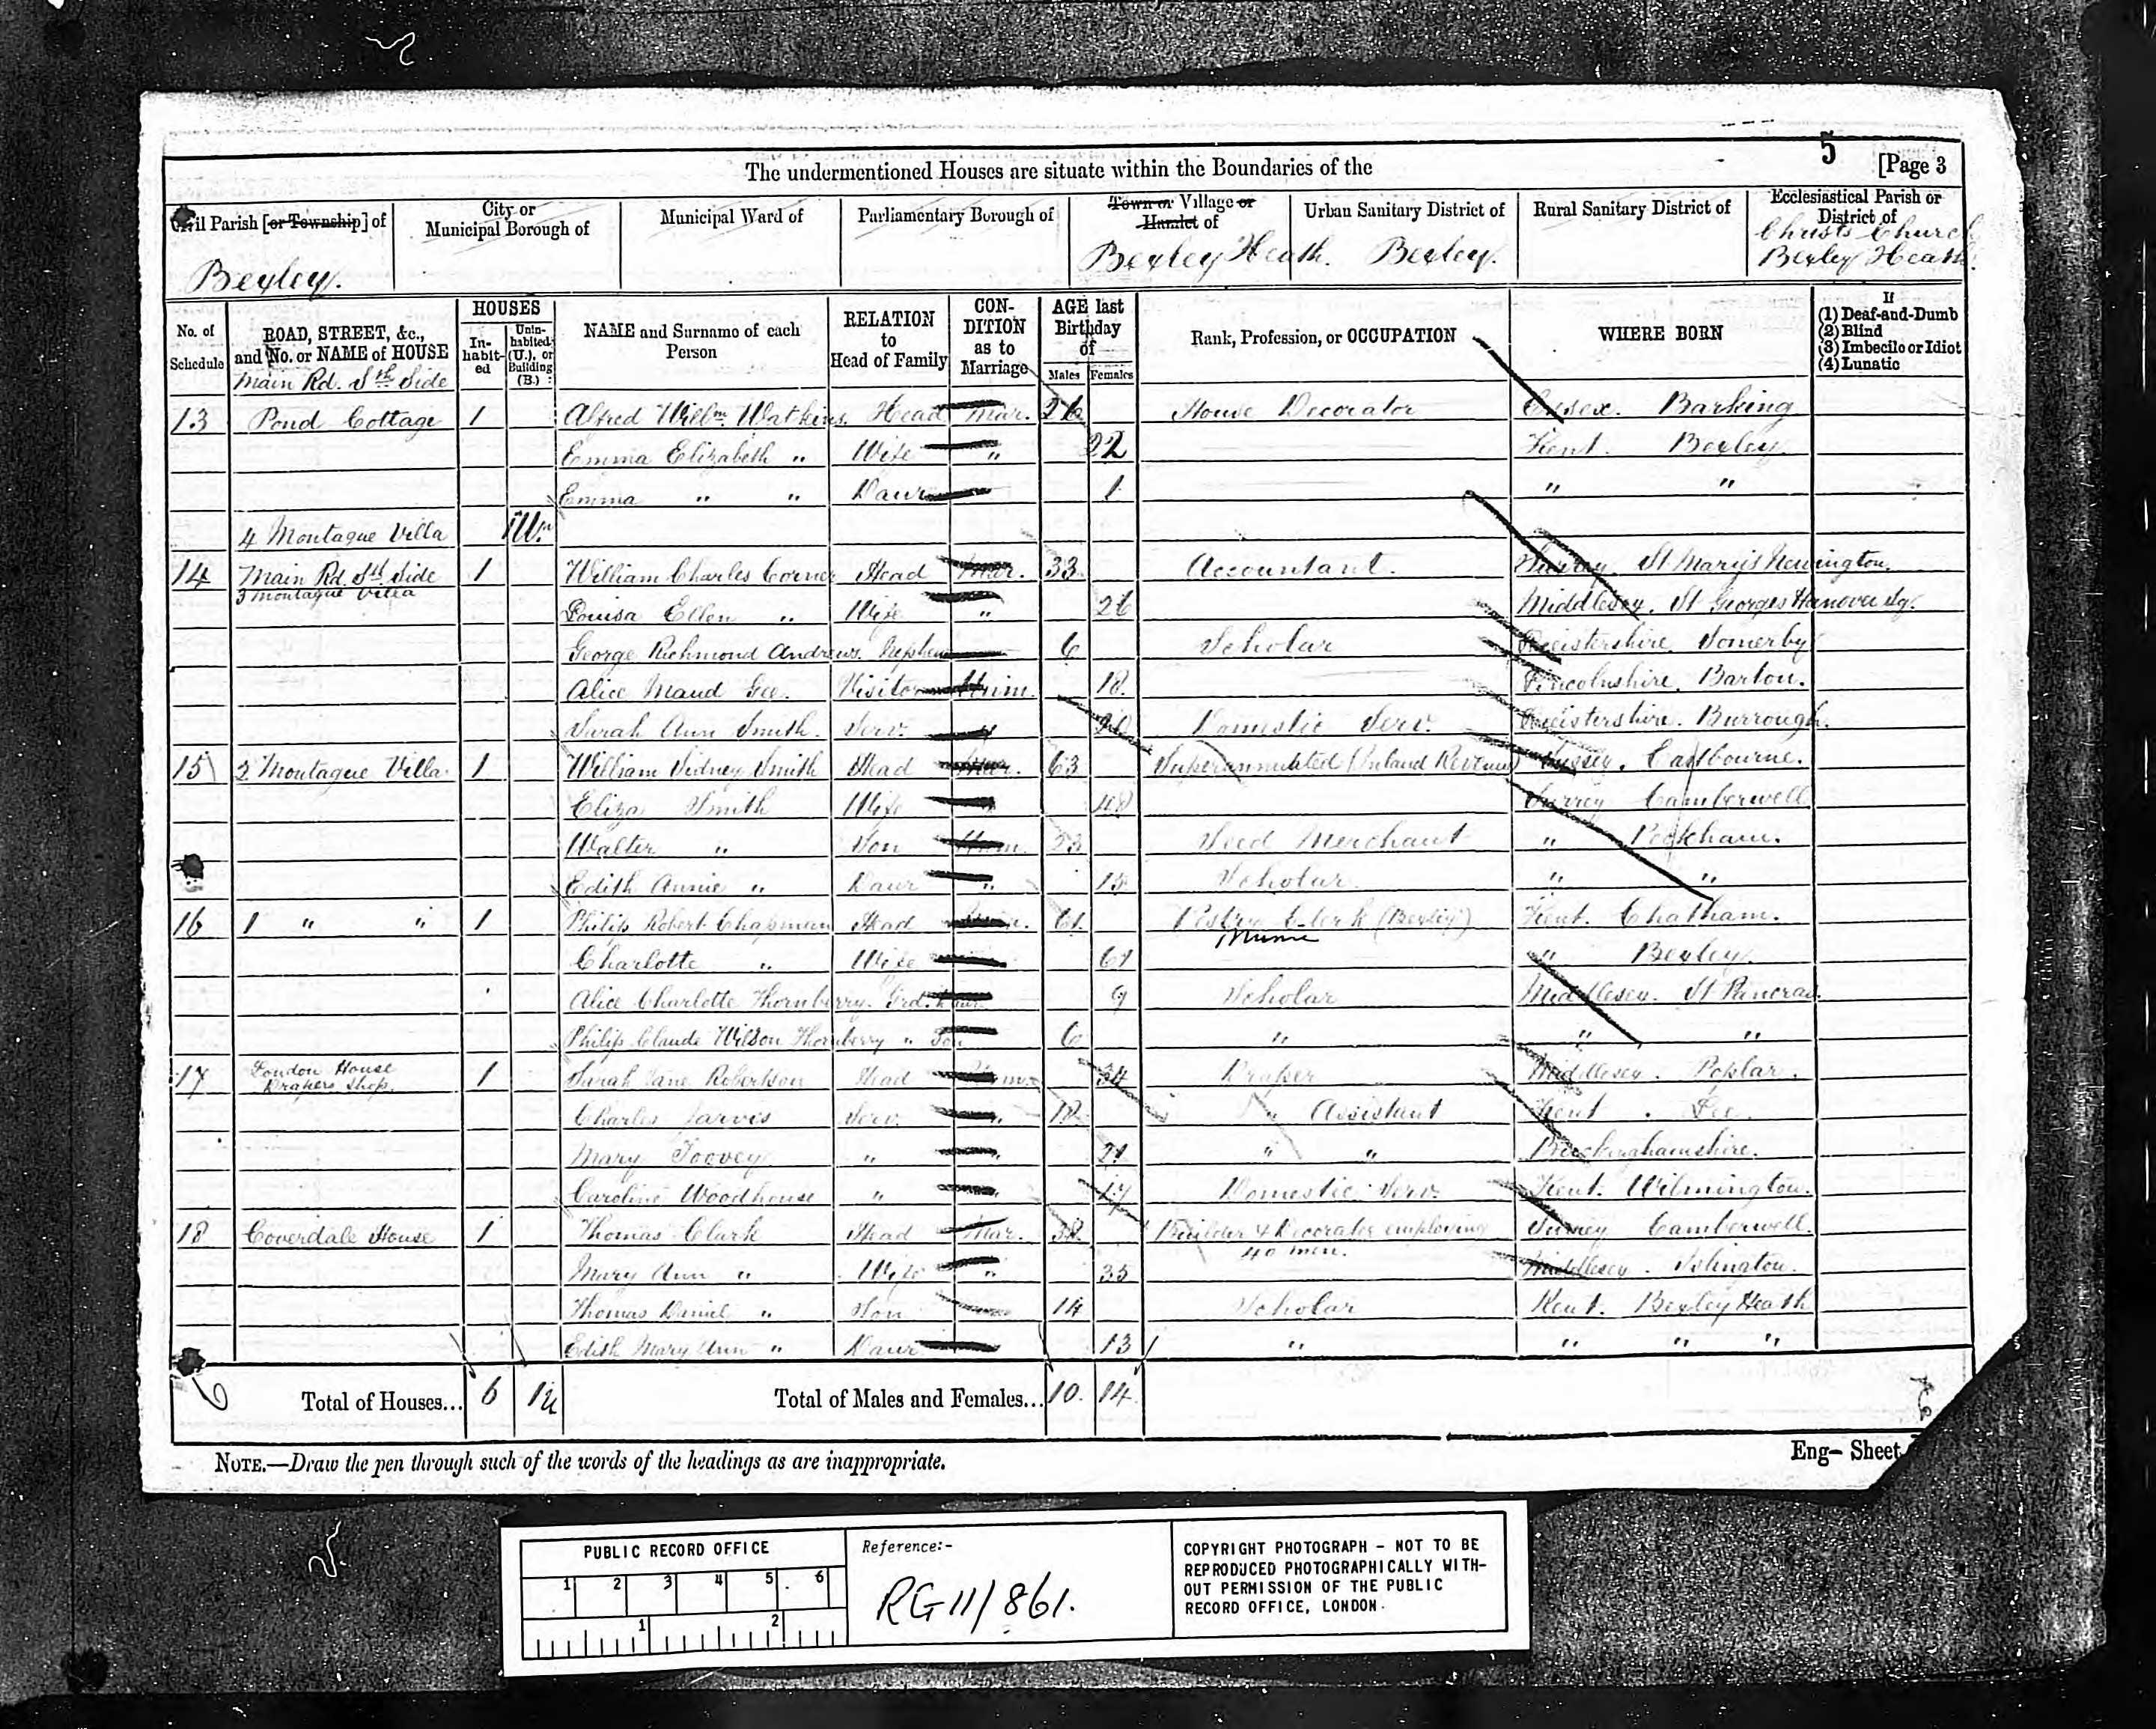 5 [Page 3
The undermentioned Houses are situate within the Boundaries of the
Civil Parish [or Township] of
City or Municipal Borough of
Municipal Ward of
Parliamentary Borough of
Town or Village or Hamlet of
Urban Sanitary District of
Rural Sanitary District of
Ecclesiastical Parish or District of
Bexley. Bexley Heath. Bexley. Christs Church Bexley Heath.
No. of Schedule
ROAD, STREET, &c., and No. or NAME of HOUSE
HOUSES
In-habit-ed
Unin-habited (U.), or Building (B.)
NAME and Surname of each Person
RELATION to Head of Family
CON-DITION as to Marriage
AGE last Birthday of
Males Females
Rank, Profession, or OCCUPATION
WHERE BORN
If
(1) Deaf-and-Dumb
(2) Blind
(3) Imbecile or Idiot
(4) Lunatic
Main Rd. Sth Side
13 Pond Cottage 1 Alfred Willm. Watkins Head Mar. 26 House Decorator Essex. Barking
Emma Elizabeth " Wife " 22 Kent. Bexley
Emma " " Daur 1 " "
4 Montague Villa 1 Un.
14 Main Rd. Sth Side 1 William Charles Corner Head Mar. 33 Accountant. Surrey St Mary's Newington.
3 Montague Villa
Louisa Ellen " Wife " 26 Middlesex. St Georges Hanover Sq.
George Richmond Andrews. Nephew 6 Scholar Leistershire Somerby
Alice Maud Gee. Visitor Unm. 18. Lincolnshire. Barton.
Sarah Ann Smith. Serv. " 20 Domestic Serv. Leistershire. Burrough.
15 2 Montague Villa 1 William Sidney Smith Head Mar. 63 Superannuated Inland Revenue Sussex. Eastbourne.
Eliza Smith Wife " Surrey Camberwell
Walter " Son Unm. 23 Seed Merchant " Peckham.
Edith Annie " Daur " 15 Scholar. " "
16 1 " " 1 Philip Robert Chapman Head 61. Vestry Clerk (Bexley) Kent. Chatham.
Charlotte " Wife 61 " Bexley.
Alice Charlotte Thornberry. Grd. Daur 9 Scholar Middlesex. St Pancras.
Philip Claude Wilson Thornberry " Son 6 " " "
17 London House 1 Sarah Jane Robertson Head Unm. 34 Draper Middlesex. Poplar.
Drapers Shop.
Charles Jarvis Serv. " 18 " Assistant Kent. Lee
Mary Toovey " " 21 " " Buckinghamshire.
Caroline Woodhouse " " 17 Domestic Serv. Kent. Wilmington.
18 Coverdale House 1 Thomas Clark Head Mar. 38. Builder & Decorator employing Surrey Camberwell.
40 men.
Mary Ann " Wife " 35 Middlesex. Islington.
Thomas Daniel " Son 14 Scholar Kent. Bexley Heath
Edith Mary Ann " Daur 13 " " " "
6 Total of Houses... 6 1u Total of Males and Females... 10. 14
NOTE.—Draw the pen through such of the words of the headings as are inappropriate.
Eng- Sheet
PUBLIC RECORD OFFICE
1 2 3 4 5 6
1 2
Reference:-
RG 11/861.
COPYRIGHT PHOTOGRAPH - NOT TO BE
REPRODUCED PHOTOGRAPHICALLY WITH-
OUT PERMISSION OF THE PUBLIC
RECORD OFFICE, LONDON.